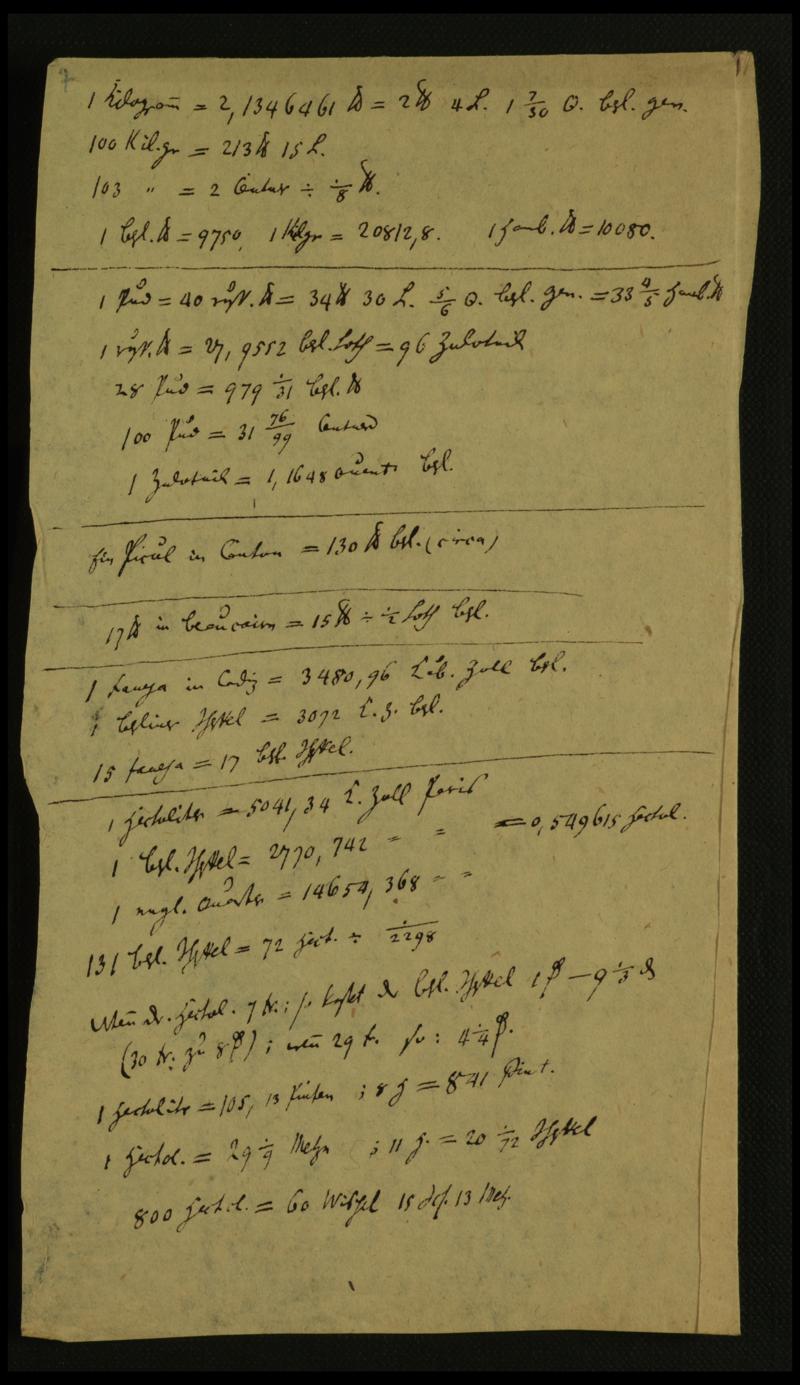 1 Kilogram̄ = 2,1346461 ℔ = 2 ℔ 4 L. 1 7/30 Q. bgl. gen.
100 Kil.gr = 213 ℔ 15 L.
103 " = 2 Centner ÷ 1/8 ℔.
1 bgl. ℔ = 9750, 1 Klgr = 20812,8. 1 hamb. ℔ = 10080.
1 Pud = 40 ℔ = 34 ℔ 30 L. 5/6 Q. bgl. gen. = 33 4/5 hamb. ℔
1 ℔ = 27,9552 bgl. Loth = 96 Zolotnik
28 Pud = 979 1/31 bgl. ℔
100 Pud = 31 76/99 Centner
1 Zolotnik = 1,1648 Quent bgl.
Ein Picul in Canton = 130 ℔ bgl. (circa)
17 ℔ in Beaucaire = 15 ℔ ÷ 1/2 Loth bgl.
1 Fanega in Cadiz = 3480,96 Cub. Zoll bgl.
1 Schfel = 3072 C. Z. bgl.
15 Fanega = 17 bgl. Schfel.
1 Hectoliter = 5041,34 C. Zoll Paris
1 bgl. Schfel = 2770,742 " " = 0,549615 Hectol.
1 engl. Quarter = 14654,368 " "
131 bgl. Schfel = 72 Hect. ÷ 1/2298
Wen̄ d. Hectol. 7 fr.; so kostet d bgl. Schfel 1 - 9 1/5
(30 fr. zu 8); wen̄ 29 f. so: 4 1/4
1 Hectolitr = 105,13 Pinten ; 8 H = 841 Pint.
1 Hectol. = 29 1/9 Metzn ; 11 H. = 20 1/72 Schfel
800 Hectol. = 60 Wispel 15 Sch. 13 Metz.